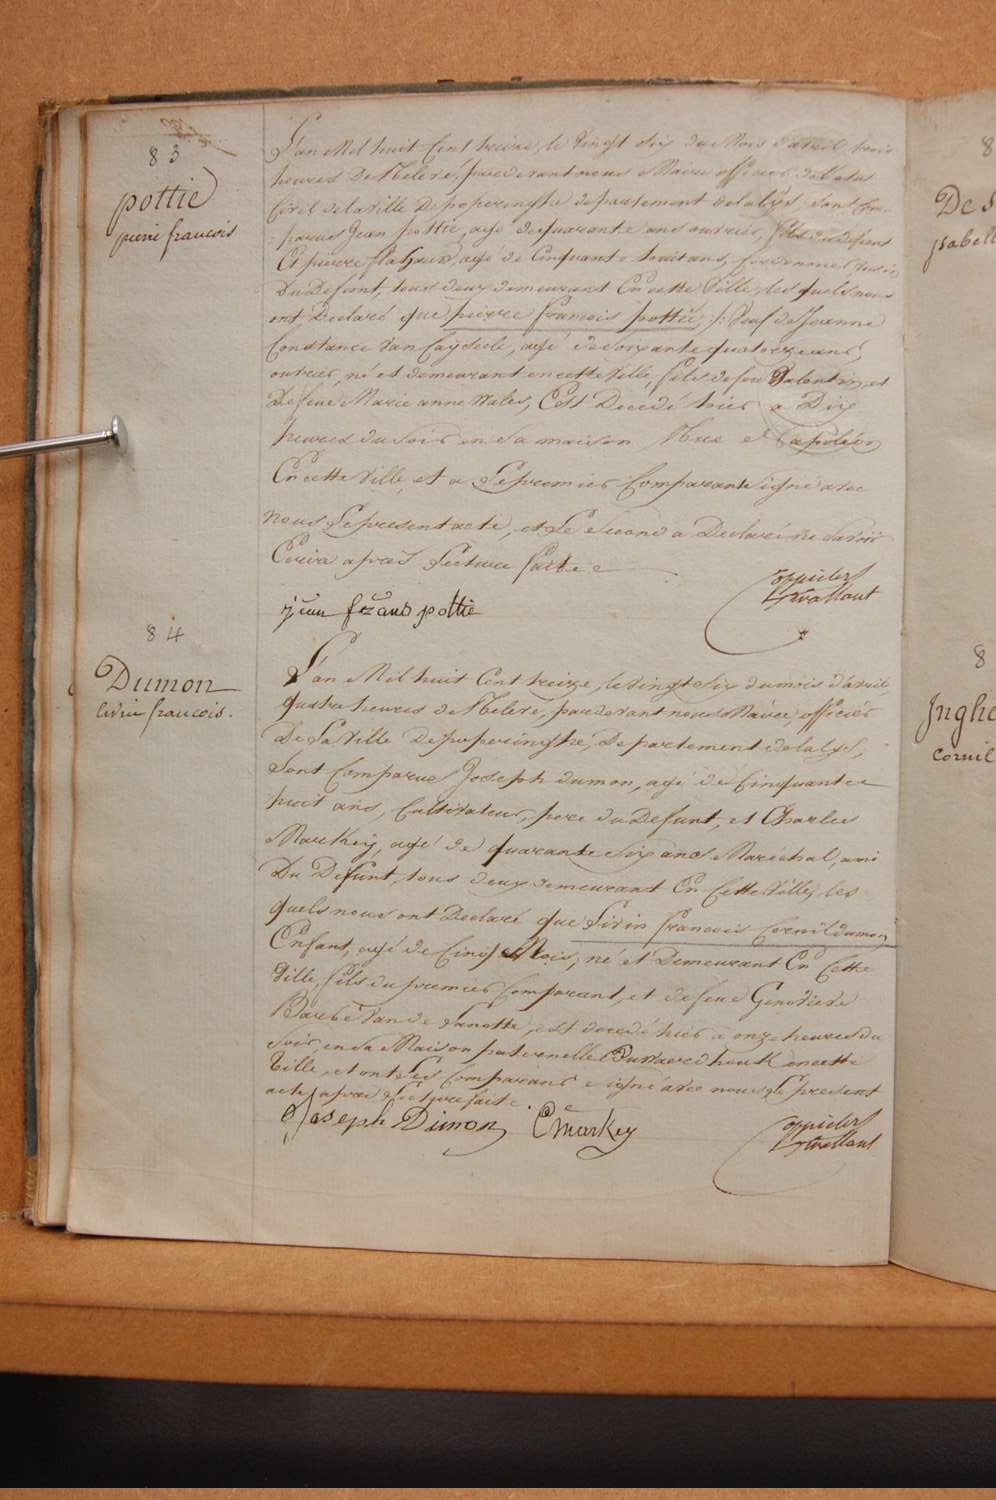 83
pottie
pierre francois
L'an Mil huit Cent treize, le vingt Six du Mois d'avril, trois
heures De Relevé, pardevant nous Maire officier de l'etat
Civil de la Ville De poperinghe departement de la lÿs, sont Com-
parus Jean pottie, agé de quarante ans ouvrier, fils du defunt
Et pierre flahaux, agé de Cinquante huit ans,
Du Defunt, tous deux demeurant En cette Ville, les quels nous
ont Declaré que pierre francois pottie, Veuf de Jeanne
Constance Van Cayseele, agé de soixante quatorze ans,
ouvrier, né et demeurant en cette Ville, fils de feu Valentin, et
De feue Marie anne Wales, Est Decedé hier a Dix
heures du soir en sa maison Rue Napoléon
En cette Ville, et a Le premier Comparant signé avec
nous Le present acte, et Le second a Declaré ne savoir
Ecrire apres Lecture faitte
jean frans pottie
84
Dumon
livin francois.
L'an Mil huit Cent treize, le vingt Six du mois d'avril,
quatre heures de Relevé, pardevant nous Maire, officier
De La Ville De poperinghe, Departement de la lÿs,
Sont Comparus Joseph dumon, agé de Cinquante
huit ans, Cultivateur, pere du Defunt, et Charles
MarKey, agé de quarante Six ans Maréchal, ami
Du Defunt, tous deux demeurant En Cette Ville, les
quels nous ont Declaré que Livin francois Cornil dumon,
Enfant, agé de Cinq Mois, né et Demeurant En Cette
Ville, fils du premier Comparant, et de feue Genevieve
Barbe Van de Lanotte, est decedé hier a onze heures du
soir, en sa Maison paternelle en cette
Ville, et ont Les Comparans signé avec nous Le present
acte apres Lecture faite
Joseph Dumon CMarKey
De S
isabell
8
Inghe
Cornil